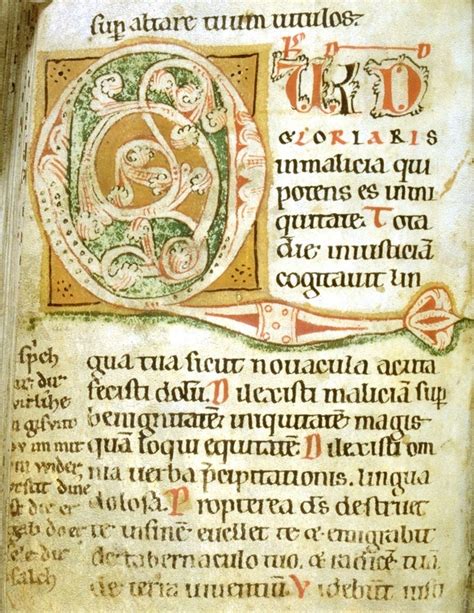 sup altare tuum uitulos:
QUID
GLORIARIS
in malicia qui
potens es in ini
quitate. Tota
die iniusticiā
cogitauit lin
gua tua sicut nouacula acuta
fecisti dolū. Dilexisti maliciā sup
benignitatē iniquitatē magis
quā loqui equitatē. Dilexisti om
nia uerba p̄cipitationis. lingua
dolosa. Propterea d̄s destruet
te in finē euellet te & emigrabit
te de tabernaculo tuo. & radicē tuā
de terra uiuentiū. Videbunt iusti
ar dur
mut
wider
dine
die er
do er